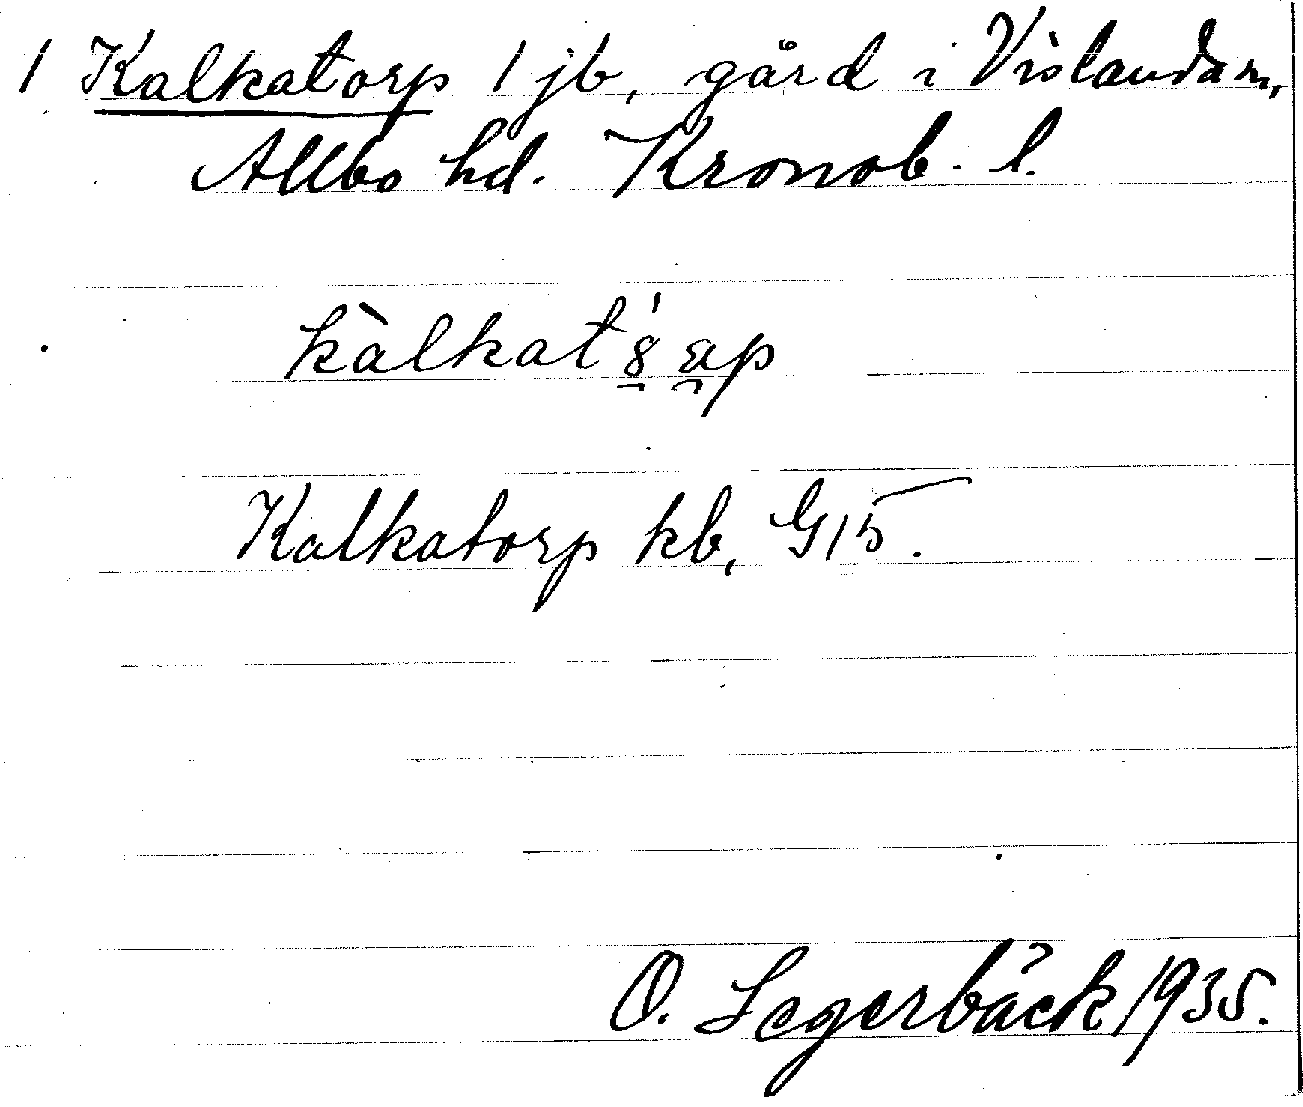 1 Kalkatorp 1 jb, gård i Vislanda sn,
Allbo hd. Kronob. l.
Kalkatorp kb, G15.
O. Segerbäck 1935.